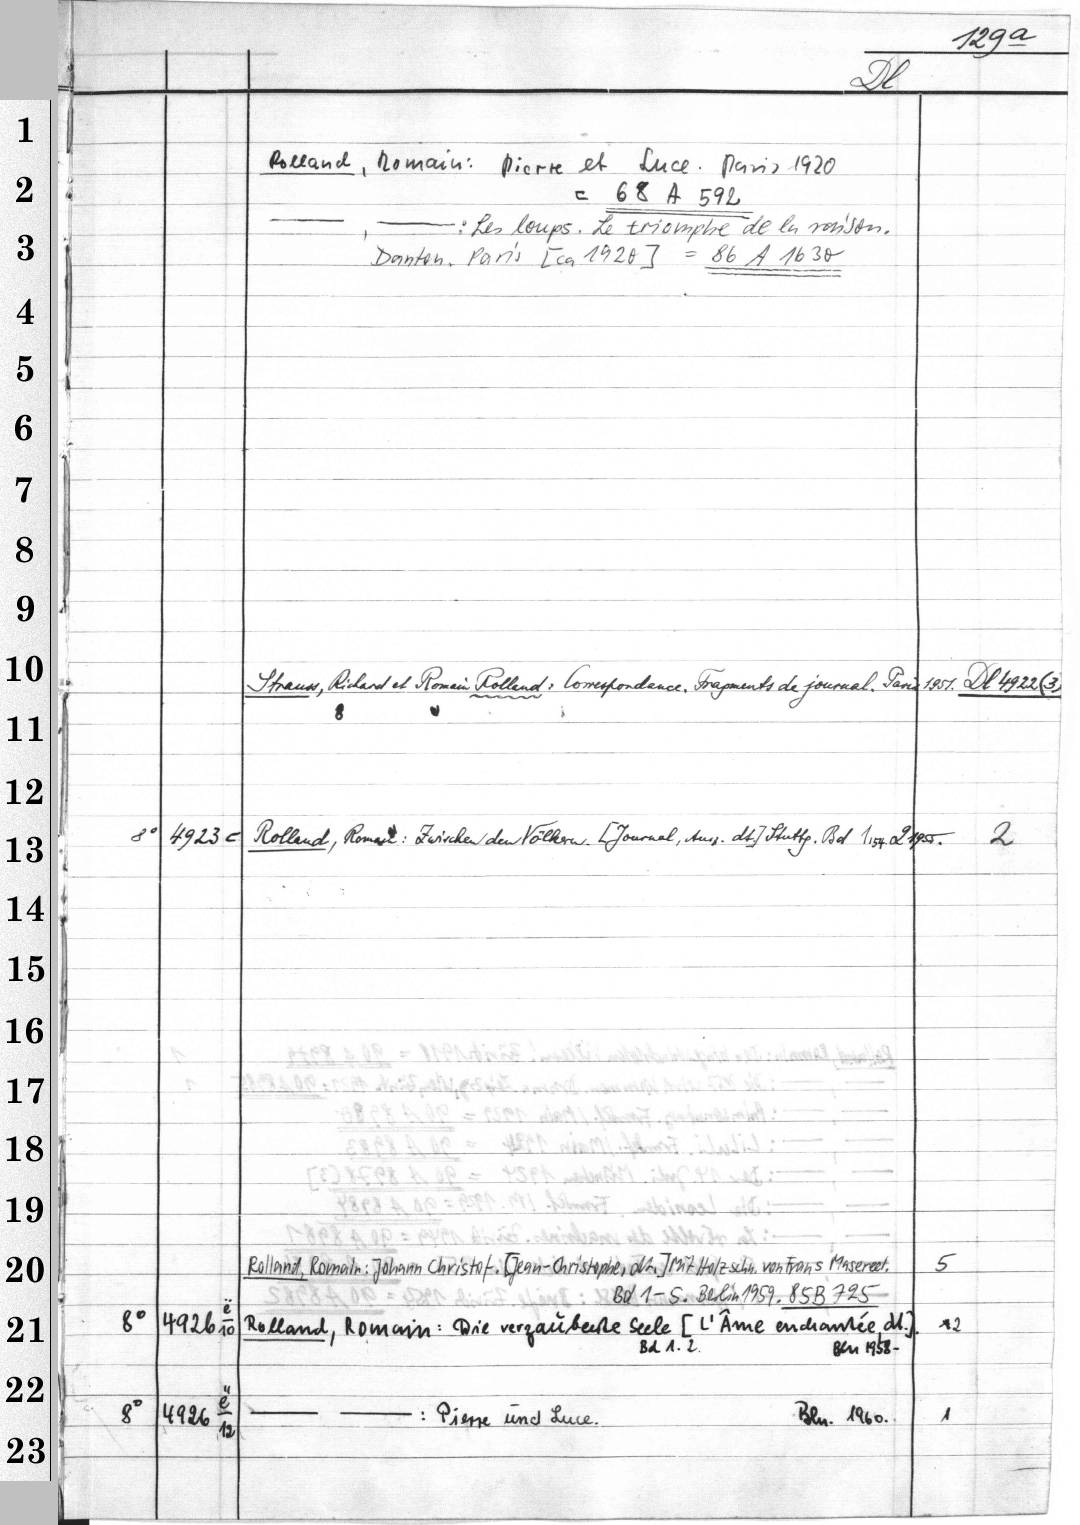 129a
Dl
1
Rolland, Romain: Pierre et Luce. Paris 1920
2
= 68 A 592
——, ——: Les loups. Le triomphe de la raison.
3
Danton. Paris [ca 1920] = 86 A 1630
4
5
6
7
8
9
10
Strauss, Richard et Romain Rolland: Correspondance. Fragments de journal. Paris 1951. Dl 4922(3)
8
11
12
13 8° 4923 c Rolland, Romain: Zwischen den Völkern. [Journal, Ausz. dt.] Stuttg. Bd 1,54. 2 1955. 2
14
15
16
17
18
19
20 Rolland, Romain: Johann Christof. [Jean-Christophe, dt.] Mit Holzschn. von Frans Masereel. 5
Bd 1-5. Berlin 1959. 85 B 725
21 8° 4926 ë/10 Rolland, Romain: Die verzauberte Seele [L'Âme enchantée, dt.]. 2
Bd 1. 2. Bln 1958-
22
8° 4926 ë/12 —— ——: Pierre und Luce. Bln. 1960. 1
23